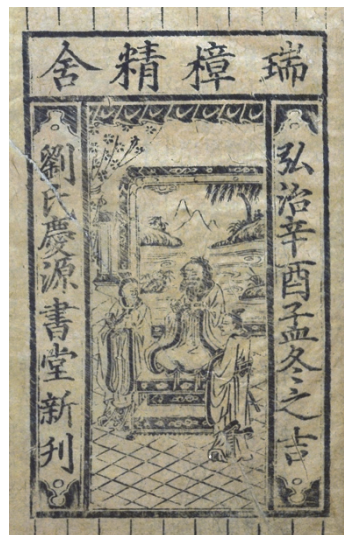 瑞樟精舍
弘治辛酉孟冬之吉
劉氏慶源書堂新刊